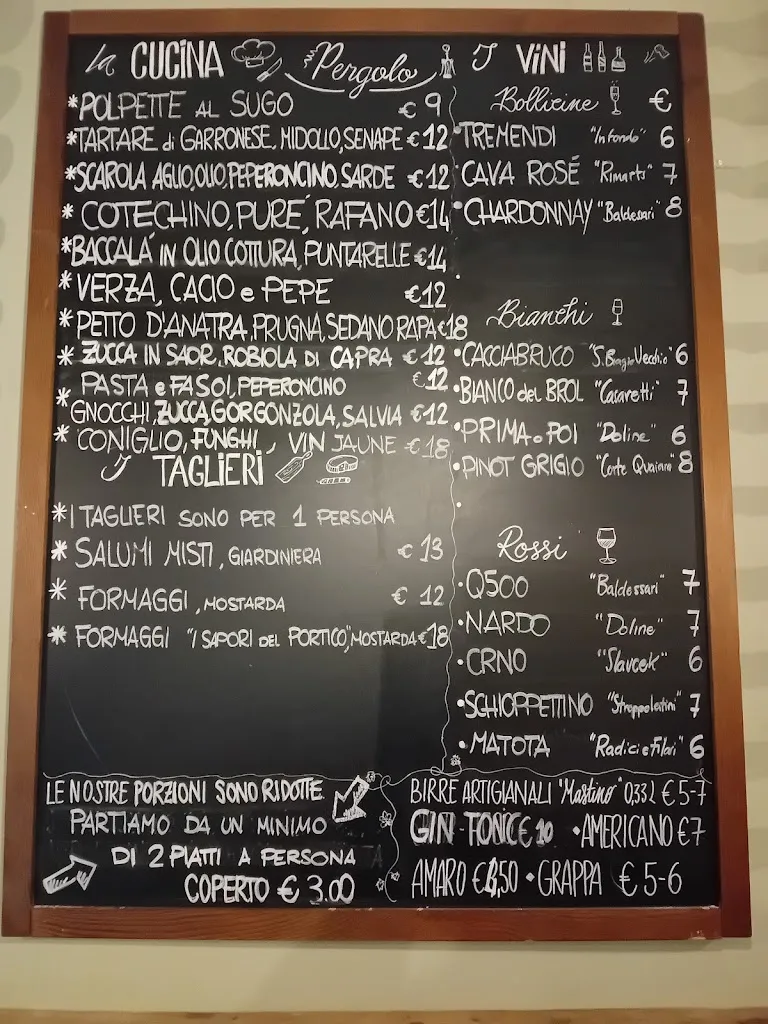 la CUCINA
Pergolo
I VINI
*POLPETTE AL SUGO € 9
*TARTARE di GARRONESE, MIDOLLO, SENAPE € 12
*SCAROLA AGLIO, OLIO, PEPERONCINO, SARDE € 12
* COTECHINO, PURE', RAFANO €14
*BACCALA' IN OLIO COTTURA, PUNTARELLE €14
* VERZA, CACIO e PEPE €12
* PETTO D'ANATRA, PRUGNA, SEDANO RAPA €18
* ZUCCA IN SAOR, ROBIOLA DI CAPRA € 12
PASTA e FASOI, PEPERONCINO €12
* GNOCCHI, ZUCCA, GORGONZOLA, SALVIA €12
* CONIGLIO, FUNGHI, VIN JAUNE €18
I TAGLIERI
*I TAGLIERI SONO PER 1 PERSONA
* SALUMI MISTI, GIARDINIERA € 13
* FORMAGGI, MOSTARDA € 12
* FORMAGGI "I SAPORI DEL PORTICO", MOSTARDA €18
LE NOSTRE PORZIONI SONO RIDOTTE
PARTIAMO DA UN MINIMO
DI 2 PIATTI A PERSONA
COPERTO € 3.00
Bollicine €
•TREMENDI "Infondo" 6
•CAVA ROSÉ 7
•CHARDONNAY "Baldessari" 8
Bianchi
•CACCIABRUCO 6
•BIANCO del BROL "Casaretti" 7
•PRIMA e POI "Doline" 6
•PINOT GRIGIO 8
Rossi
•Q500 "Baldessari" 7
•NARDO "Doline" 7
•CRNO "Slavcek" 6
•SCHIOPPETTINO 7
•MATOTA "Radici e Filari" 6
BIRRE ARTIGIANALI "Mastino" 0,33L € 5-7
GIN TONIC € 10 •AMERICANO €7
AMARO €4,50 •GRAPPA € 5-6